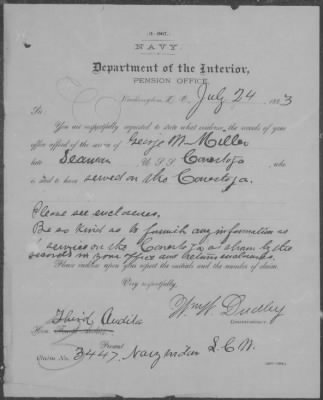 NAVY.
Department of the Interior,
PENSION OFFICE,
Washington, D. C., July 24, 1883
Sir:
You are respectfully requested to state what evidence the records of your
office afford of the service of George W. Miller
late Seaman U.S.S. Conestoga, who
is said to have served on the Conestoga.
Please see enclosures.
Be so kind as to furnish any information as
to service on the Conestoga as shown by the
records in your office and return enclosures.
Please endorse upon your report the initials and the number of claim.
Very respectfully,
Wm W. Dudley
Commissioner.
Third Auditor
Hon.
Present
Claim No. 3447, Navy